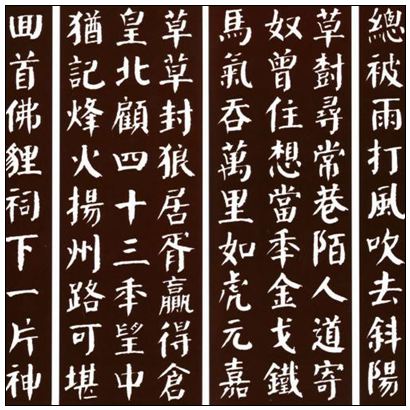 總被雨打風吹去斜陽
草尌尋常巷陌人道寄
奴曾住想當秊金戈鐵
馬氣吞萬里如虎元嘉
草草封狼居胥贏得倉
皇北顧四十三秊望中
猶記烽火揚州路可堪
囬首佛貍祠下一片神